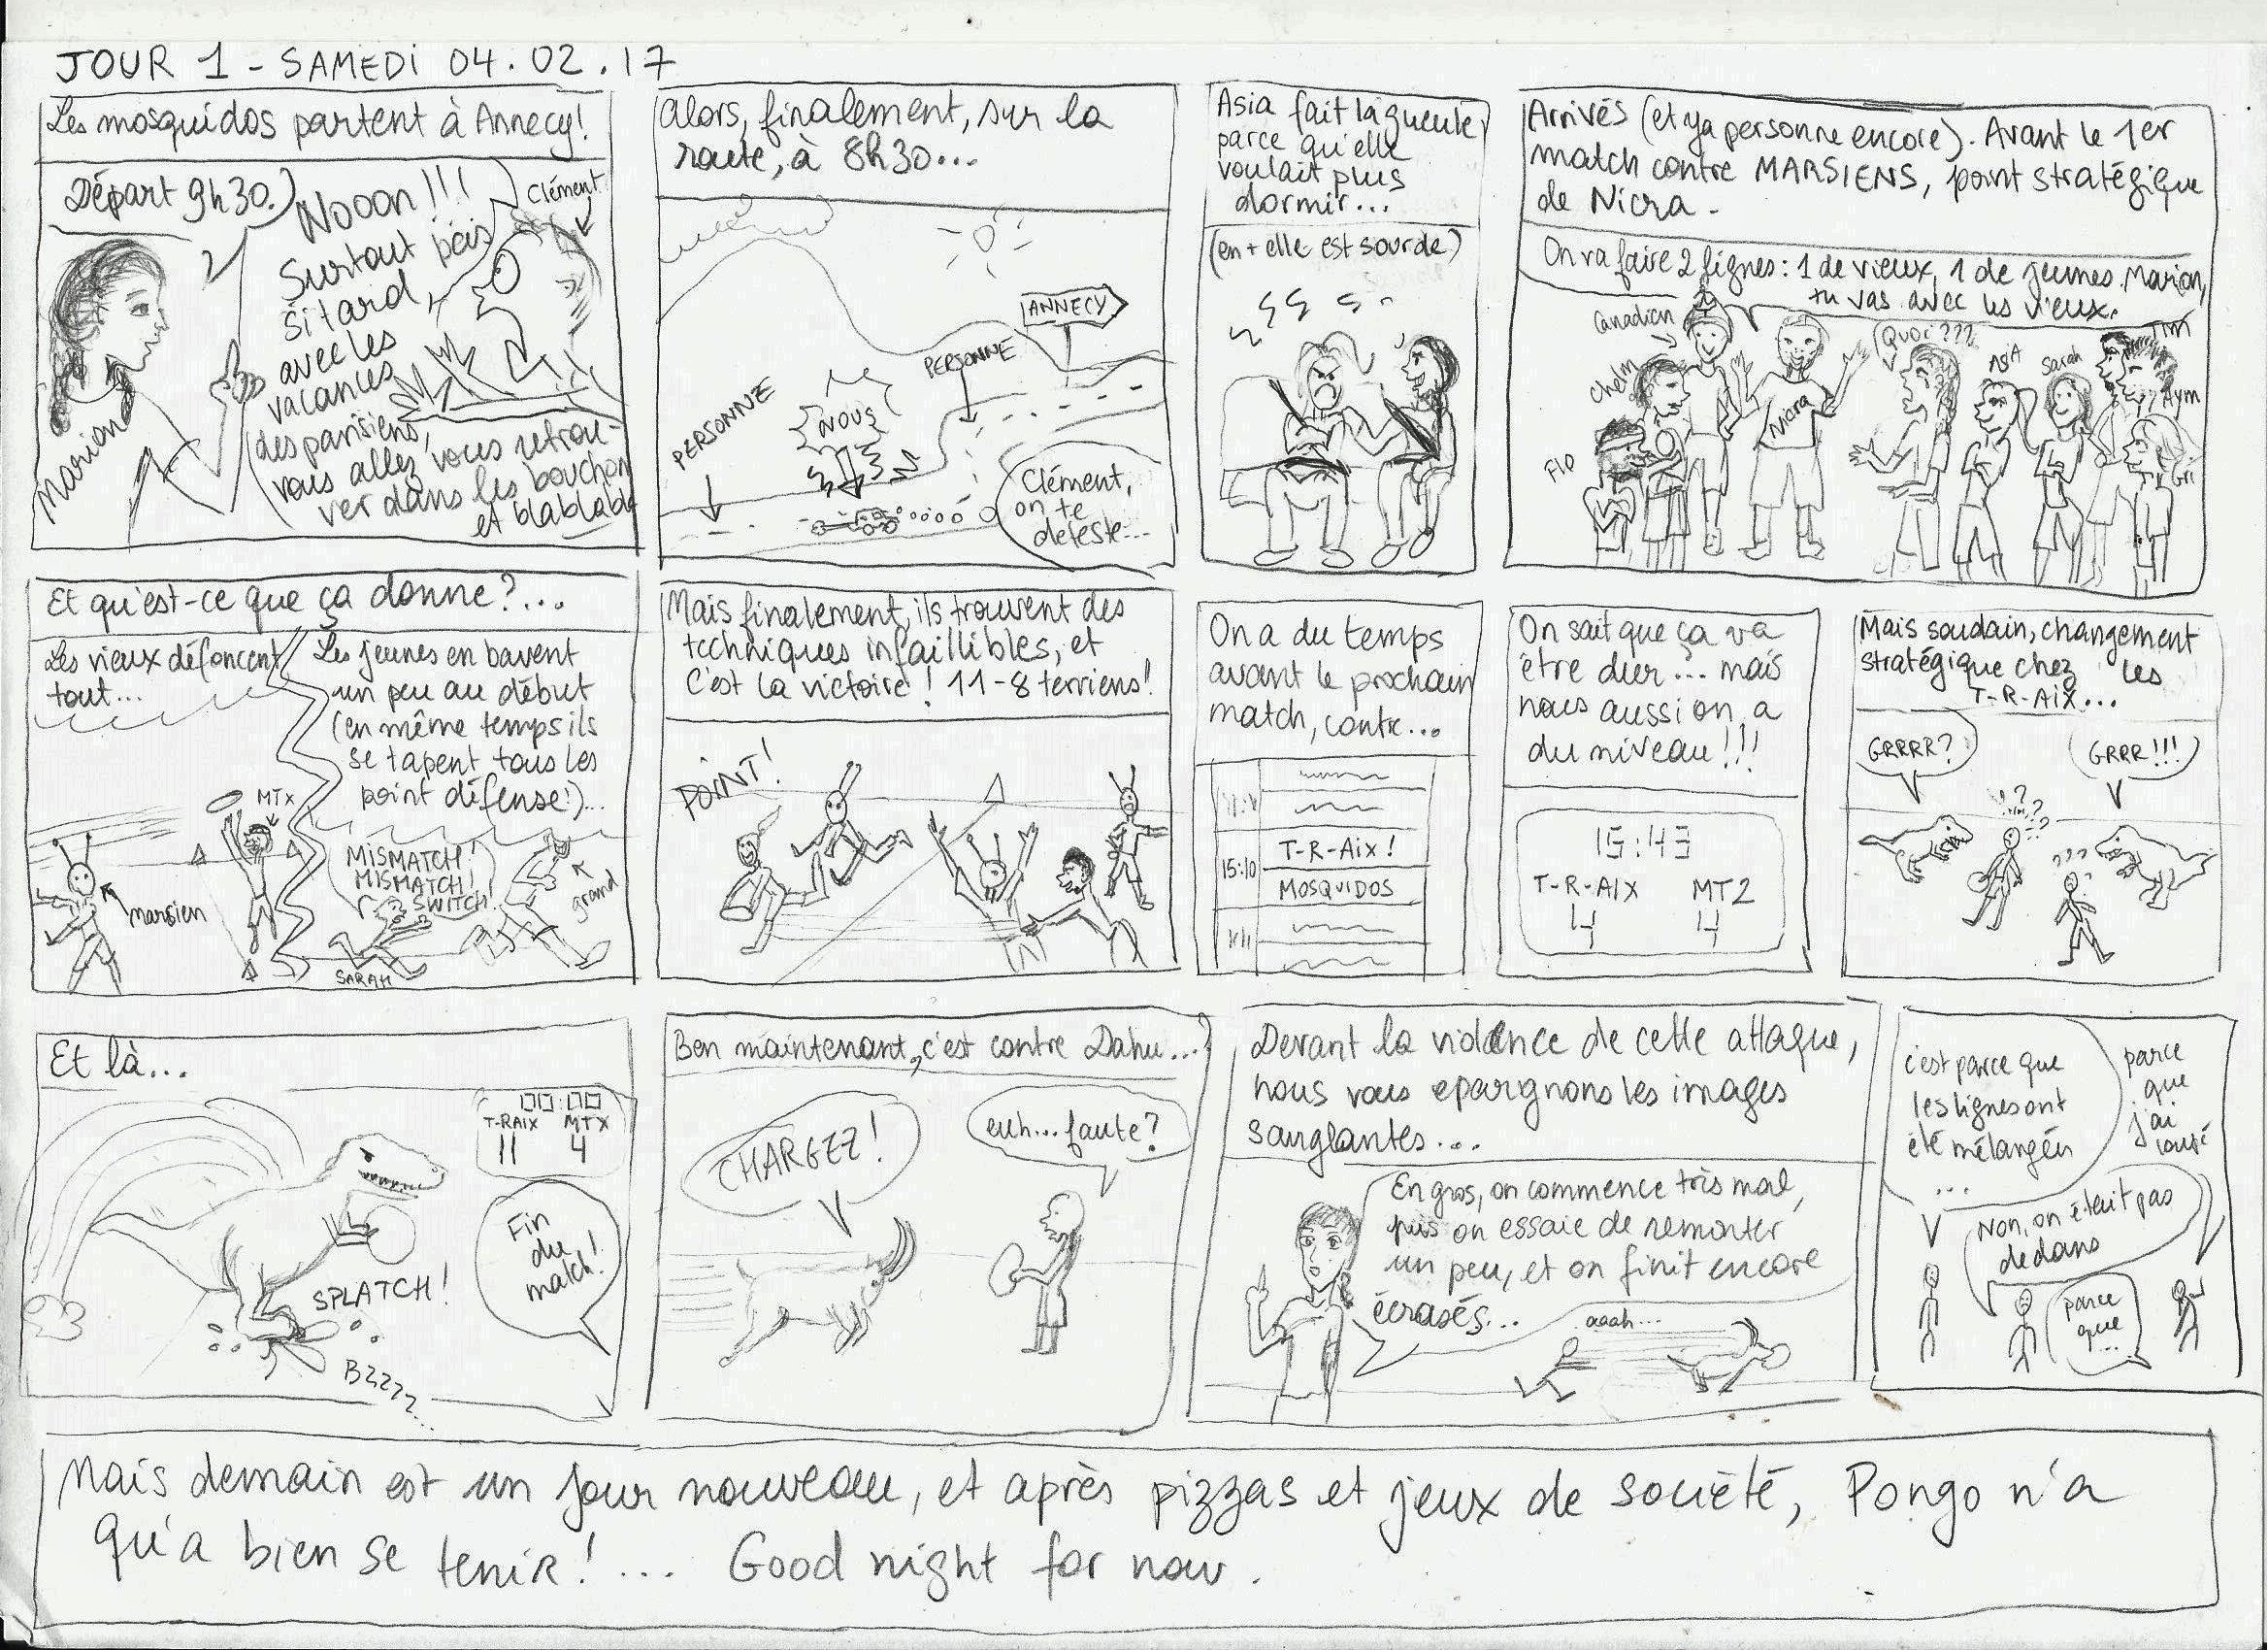 JOUR 1 - SAMEDI 04.02.17
Les mosquidos partent à Annecy!
Départ 9h30.
Nooon!!!
Surtout pas
si tard,
avec les
vacances
des parisiens,
vous allez vous retrou-
ver dans les bouchon
et blablabla
Clément
Mariona
Alors, finalement, sur la
route, à 8h30...
ANNECY
PERSONNE
PERSONNE
NOUS
Clément,
on te
déteste...
Asia fait la gueule
parce qu'elle
voulait plus
dormir...
(en + elle est sourde)
Arrivés (et ya personne encore). Avant le 1er
match contre MARSIENS, point stratégique
de Nicra.
On va faire 2 lignes: 1 de vieux, 1 de jeunes. Marion,
tu vas avec les vieux.
Canadien
Quoi???
Tim
Chelm
AsiA
Sarah
Aym
Nicra
Flo
Gri
Et qu'est-ce que ça donne?...
Les vieux défoncent
tout...
MTX
marsien
Les jeunes en bavent
un peu au début
(en même temps ils
se tapent tous les
point défense!)...
MISMATCH!
MISMATCH!
SWITCH!
grand
SARAH
Mais finalement, ils trouvent des
techniques infaillibles, et
c'est la victoire! 11-8 terriens!
POINT!
On a du temps
avant le prochain
match, contre...
15:10
T-R-Aix!
MOSQUIDOS
On sait que ça va
être dur... mais
nous aussi on a
du niveau!!!
15:43
T-R-AIX MT2
4 4
Mais soudain, changement
stratégique chez les
T-R-AiX...
GRRRR?
GRRR!!!
???
???
Et là...
00:00
T-RAIX MTX
11 4
Fin
du
match!
SPLATCH!
BZZZZ...
Ben maintenant, c'est contre Dahu...
CHARGEZ!
euh... faute?
Devant la violence de cette attaque,
nous vous epargnons les images
sanglantes...
En gros, on commence très mal,
puis on essaie de remonter
un peu, et on finit encore
écrasés...
aaah...
c'est parce que
les lignes ont
été mélangées
...
parce
que
j'ai
Non, on était pas
dedans
parce
que
...
Mais demain est un jour nouveau, et après pizzas et jeux de société, Pongo n'a
qu'a bien se tenir!... Good night for now.